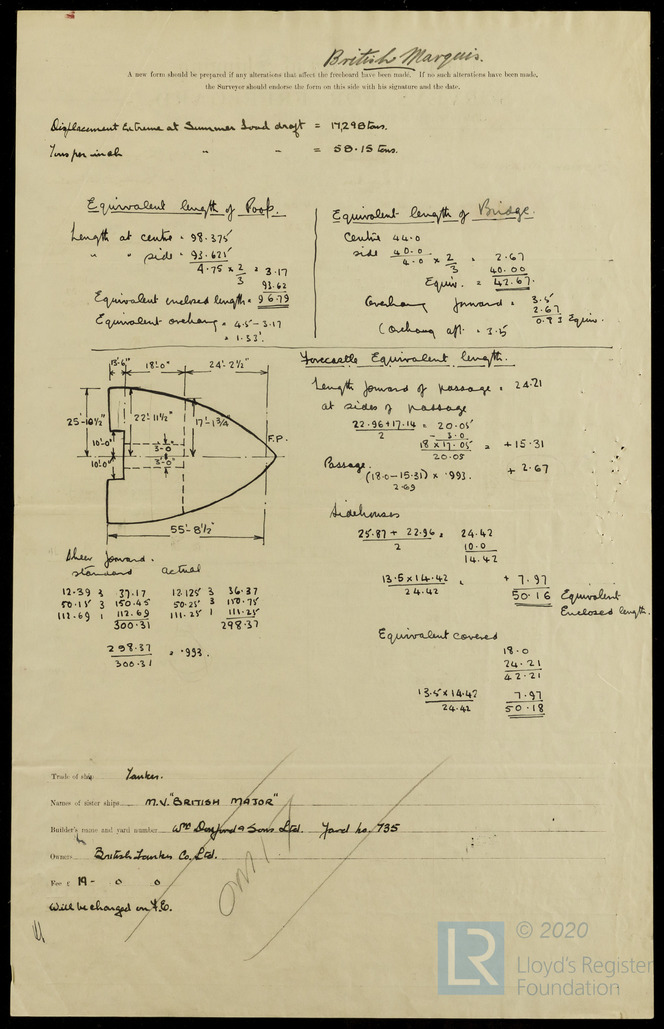 British Marquis.
A new form should be prepared if any alterations that affect the freeboard have been made. If no such alterations have been made,
the Surveyor should endorse the form on this side with his signature and the date.
Displacement Extreme at Summer Load draft = 17,298 tons.
Tons per inch " " = 58.15 tons.
Equivalent length of Poop.
Length at centre = 98.375
" " side = 93.625
4.75 x 2/3 = 3.17
93.62
Equivalent enclosed length = 96.79
Equivalent overhang = 4.5 - 3.17
= 1.33'.
Equivalent length of Bridge.
Centre 44.0
side 40.0
4.0 x 2/3 = 2.67
40.00
Equiv. = 42.67.
Overhang forward = 3.5
2.67
0.83 Equiv.
(Overhang aft. = 3.5
13'-6" 18'-0" 24'-2½"
25'-10½" 22'-11½" 17'-1¾"
F.P.
10'-0" 3'-0"
10'-0" 3'-0"
55'-8½"
Forecastle Equivalent length.
Length forward of passage = 24.21
at sides of passage
22.96+17.14 = 20.05
2 3.0
18 x 17.05 = +15.31
20.05
Passage.
(18.0-15.31) x .993. + 2.67
2.69
Sidehouses
25.87 + 22.96 = 24.42
2 10.0
14.42
13.5 x 14.42 = + 7.97
24.42
50.16 Equivalent
Enclosed length.
Sheer forward.
standard actual
12.39 3 37.17 12.125 3 36.37
50.15 3 150.45 50.25 3 150.75
112.69 1 112.69 111.25 1 111.25
300.31 298.37
298.37 = .993.
300.31
Equivalent covered
18.0
24.21
42.21
13.5 x 14.42 7.97
24.42 50.18
Trade of ship Tanker.
Names of sister ships M.V. "BRITISH MAJOR"
Builder's name and yard number Wm Doxford & Sons Ltd. Yard No. 735
Owners British Tanker Co. Ltd.
Fee £ 19 - 0 0
Will be charged on F.E.
LR © 2020
Lloyd's Register
Foundation